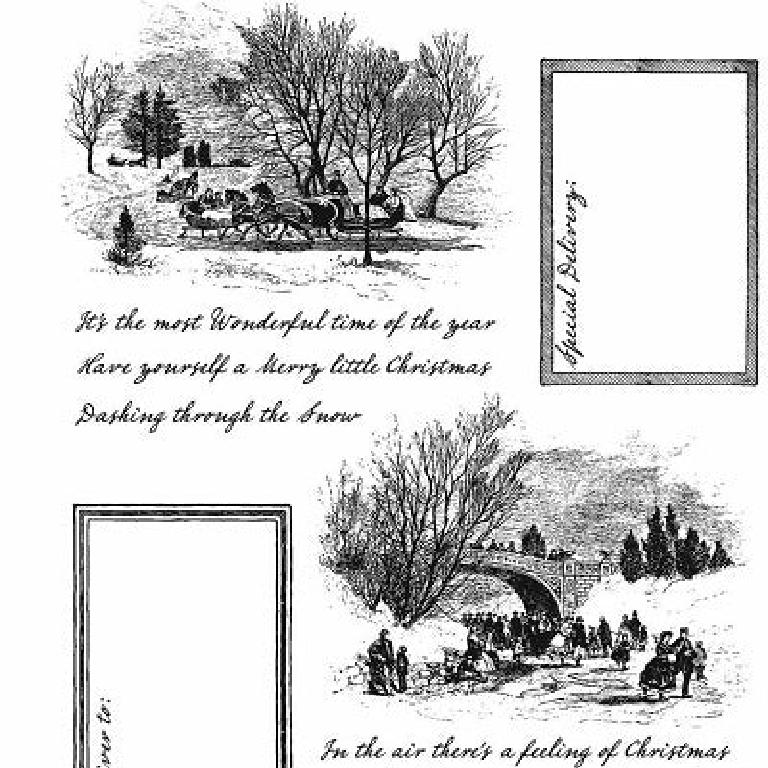 It's the most Wonderful time of the year
Have yourself a Merry little Christmas
Dashing through the Snow
Special Delivery:
ver to:
In the air there's a feeling of Christmas